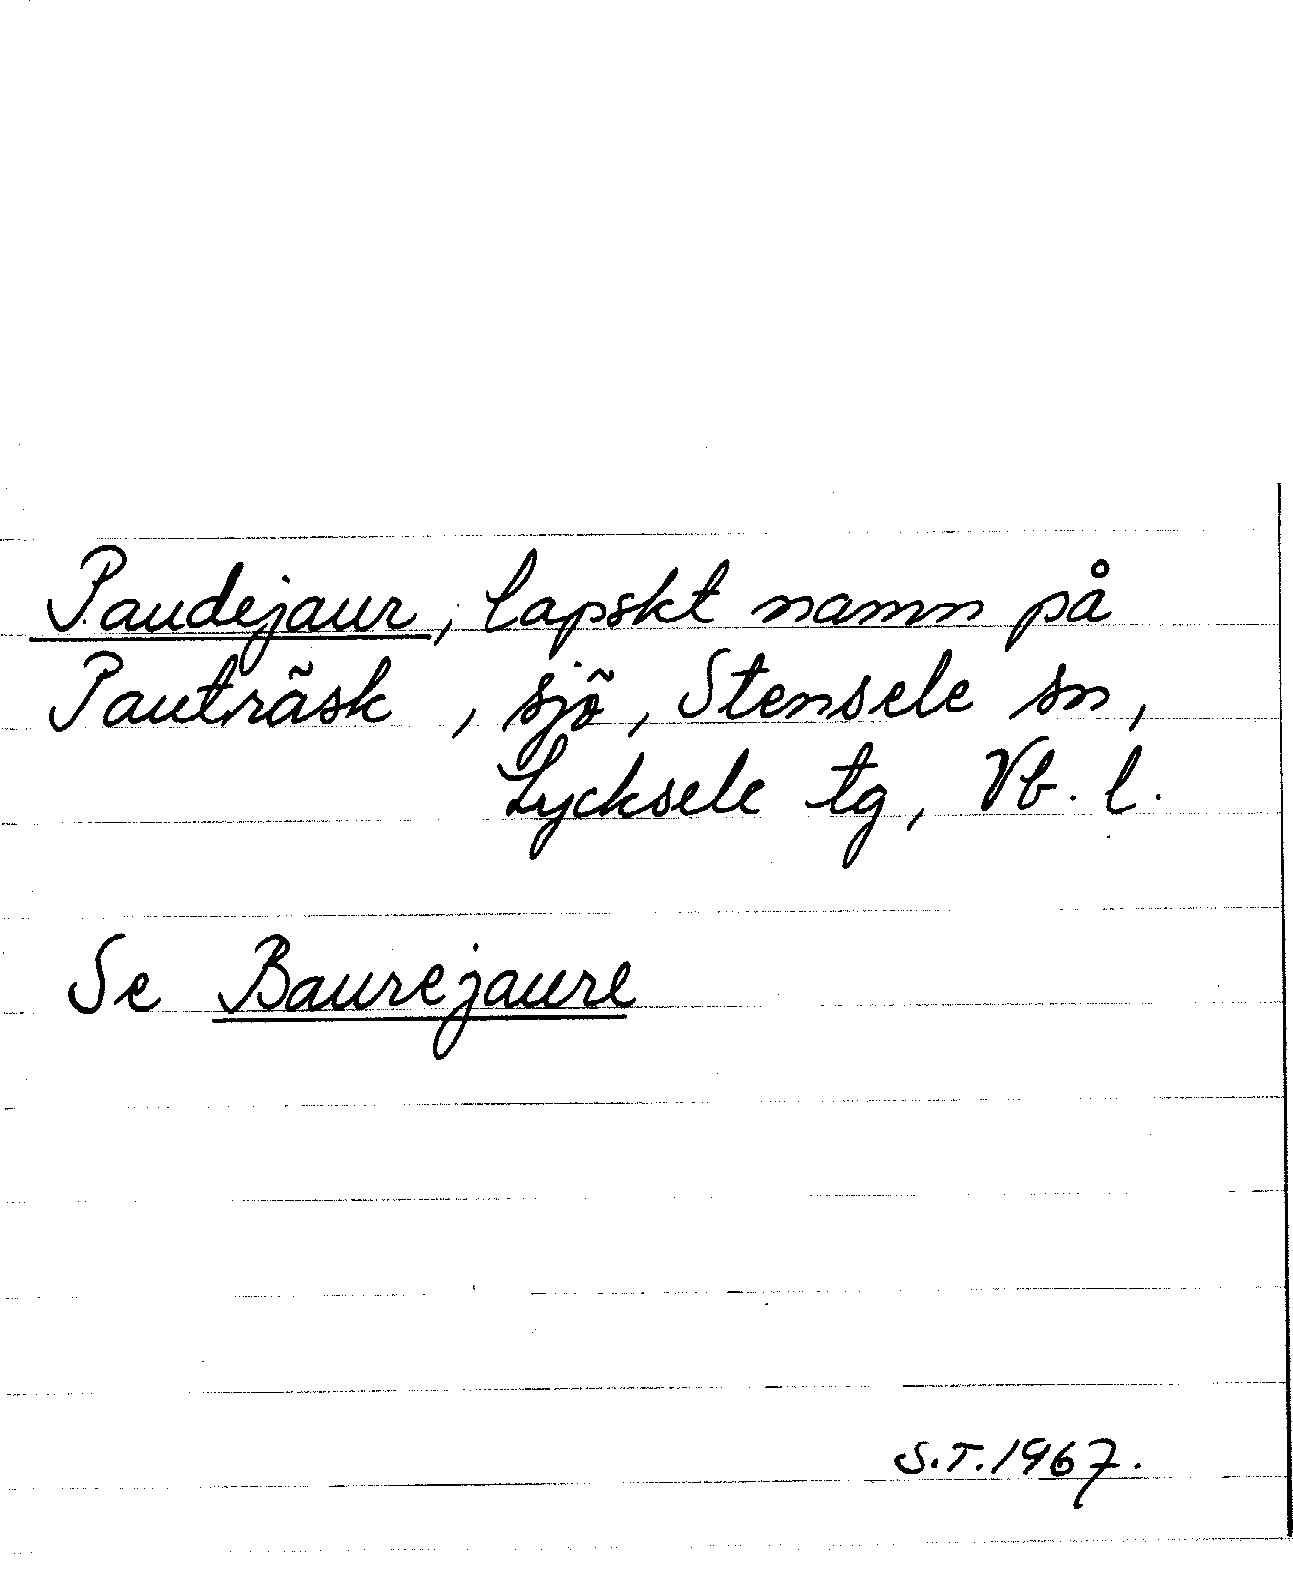 Paudejaur, lapskt namn på
Pauträsk, sjö, Stensele sn,
Lycksele tg, Vb. l.
Se Baurejaure
S.T. 1967.